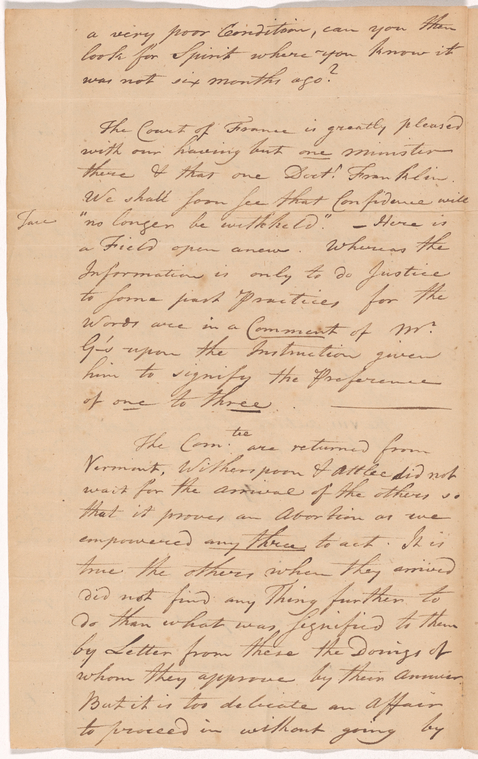 a very poor Condition, can you then
look for Spirit where you know it
was not six months ago?
The Court of France is greatly pleased
with our having but one minister
there & that one Doct.r Franklin.
We shall soon see that Confidence will
"no longer be withheld". – Here is
a Field open anew. Whereas the
Information is only to do Justice
to some past Practices for the
Words are in a Comment of Mr.
G's upon the Instruction given
him to signify the Preference
of one to three.
The Com.tee are returned from
Vermont, Witherspoon & Attlee did not
wait for the arrival of the others so
that it proves an Abortion as we
empowered any three to act. It is
true the others when they arrived
did not find any Thing further to
do than what was signified to them
by Letter from these the Doings of
whom they approve by their answer.
But it is too delicate an Affair
to proceed in without going by